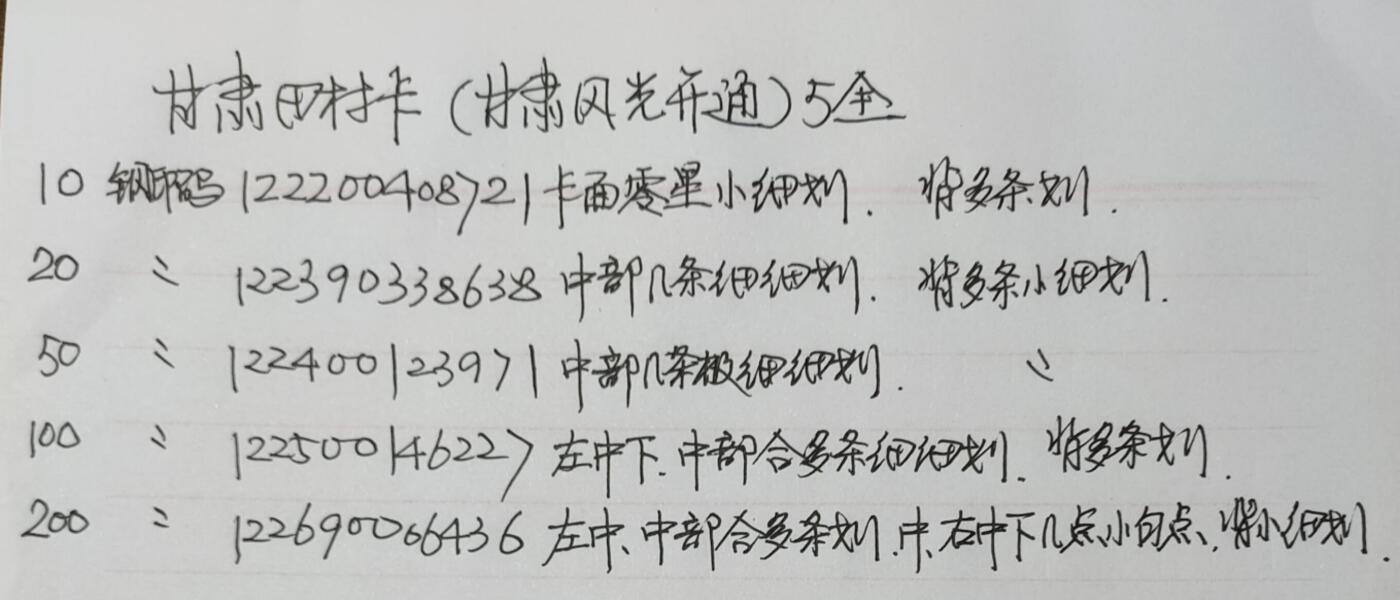 甘肃田村卡（甘肃风光开通）5全
10 钢印码 122200408721 卡面零星小细划． 背多条划．
20 〃 122390338638 中部几条细细划． 背多条小细划．
50 〃 122400123971 中部几条极细细划． 〃
100 〃 122500146227 左中下．中部合多条细细划． 背多条划．
200 〃 122690066436 左中、中部合多条划．中、右中下几点小白点、背小细划．